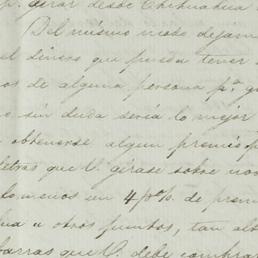 p. girar desde Chihuahua
Del mismo modo dejam
el dinero que pueda tener
os de alguna persona pª q
o sin duda sería lo mejor
obtenerse algun premio p
letras que V. girase sobre no
lo menos un 4 p% de prem
ua u otros puntos, tan al
barras que V. debe comprar